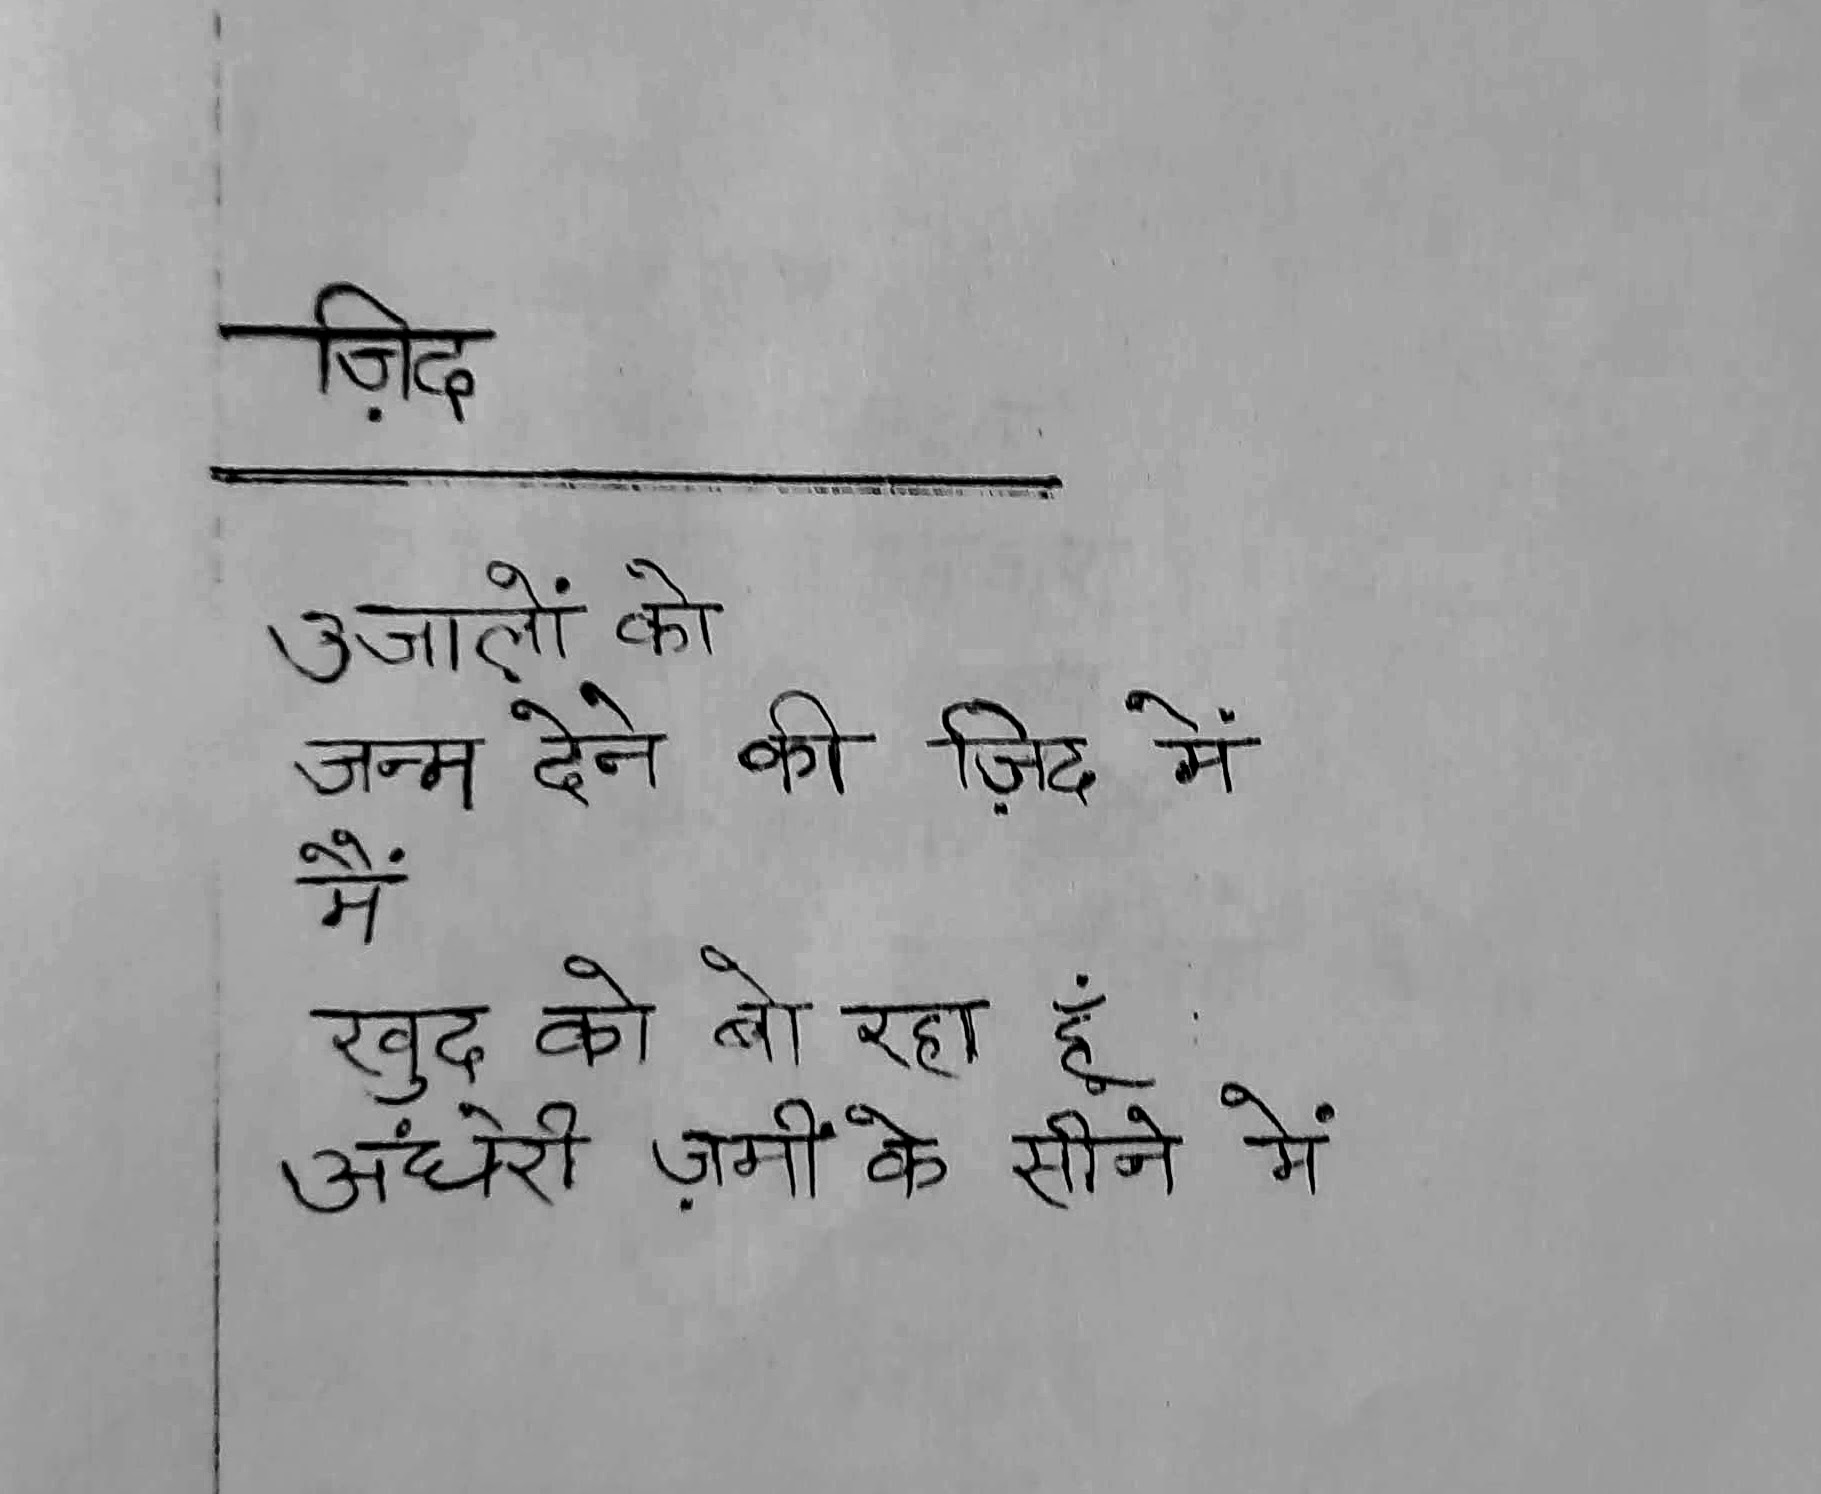 ज़िद
उजालों को
जन्म देने की ज़िद में
मैं
खुद को बो रहा हूं
अंधेरी ज़मीं के सीने में